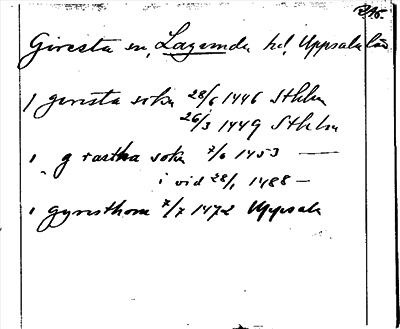 Giresta sn, Lagunda hd, Uppsala län
i geresta sokn 28/6 1446 Sthlm
26/3 1449 Sthlm
i g rastha sokn 7/6 1453 —
i vid 28/1 1488 —
i gyresthom 7/7 1472 Uppsala